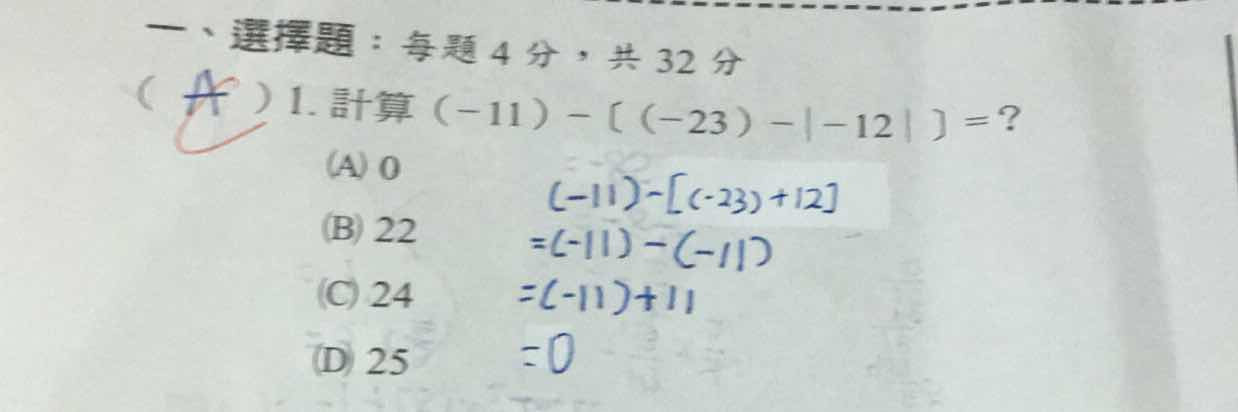 一、選擇題：每題 4 分，共 32 分
（ A ）1. 計算（－11）－〔（－23）－|－12|〕＝？
(A) 0
(-11)-[(-23)+12]
(B) 22
=(-11)-(-11)
(C) 24
=(-11)+11
(D) 25
=0